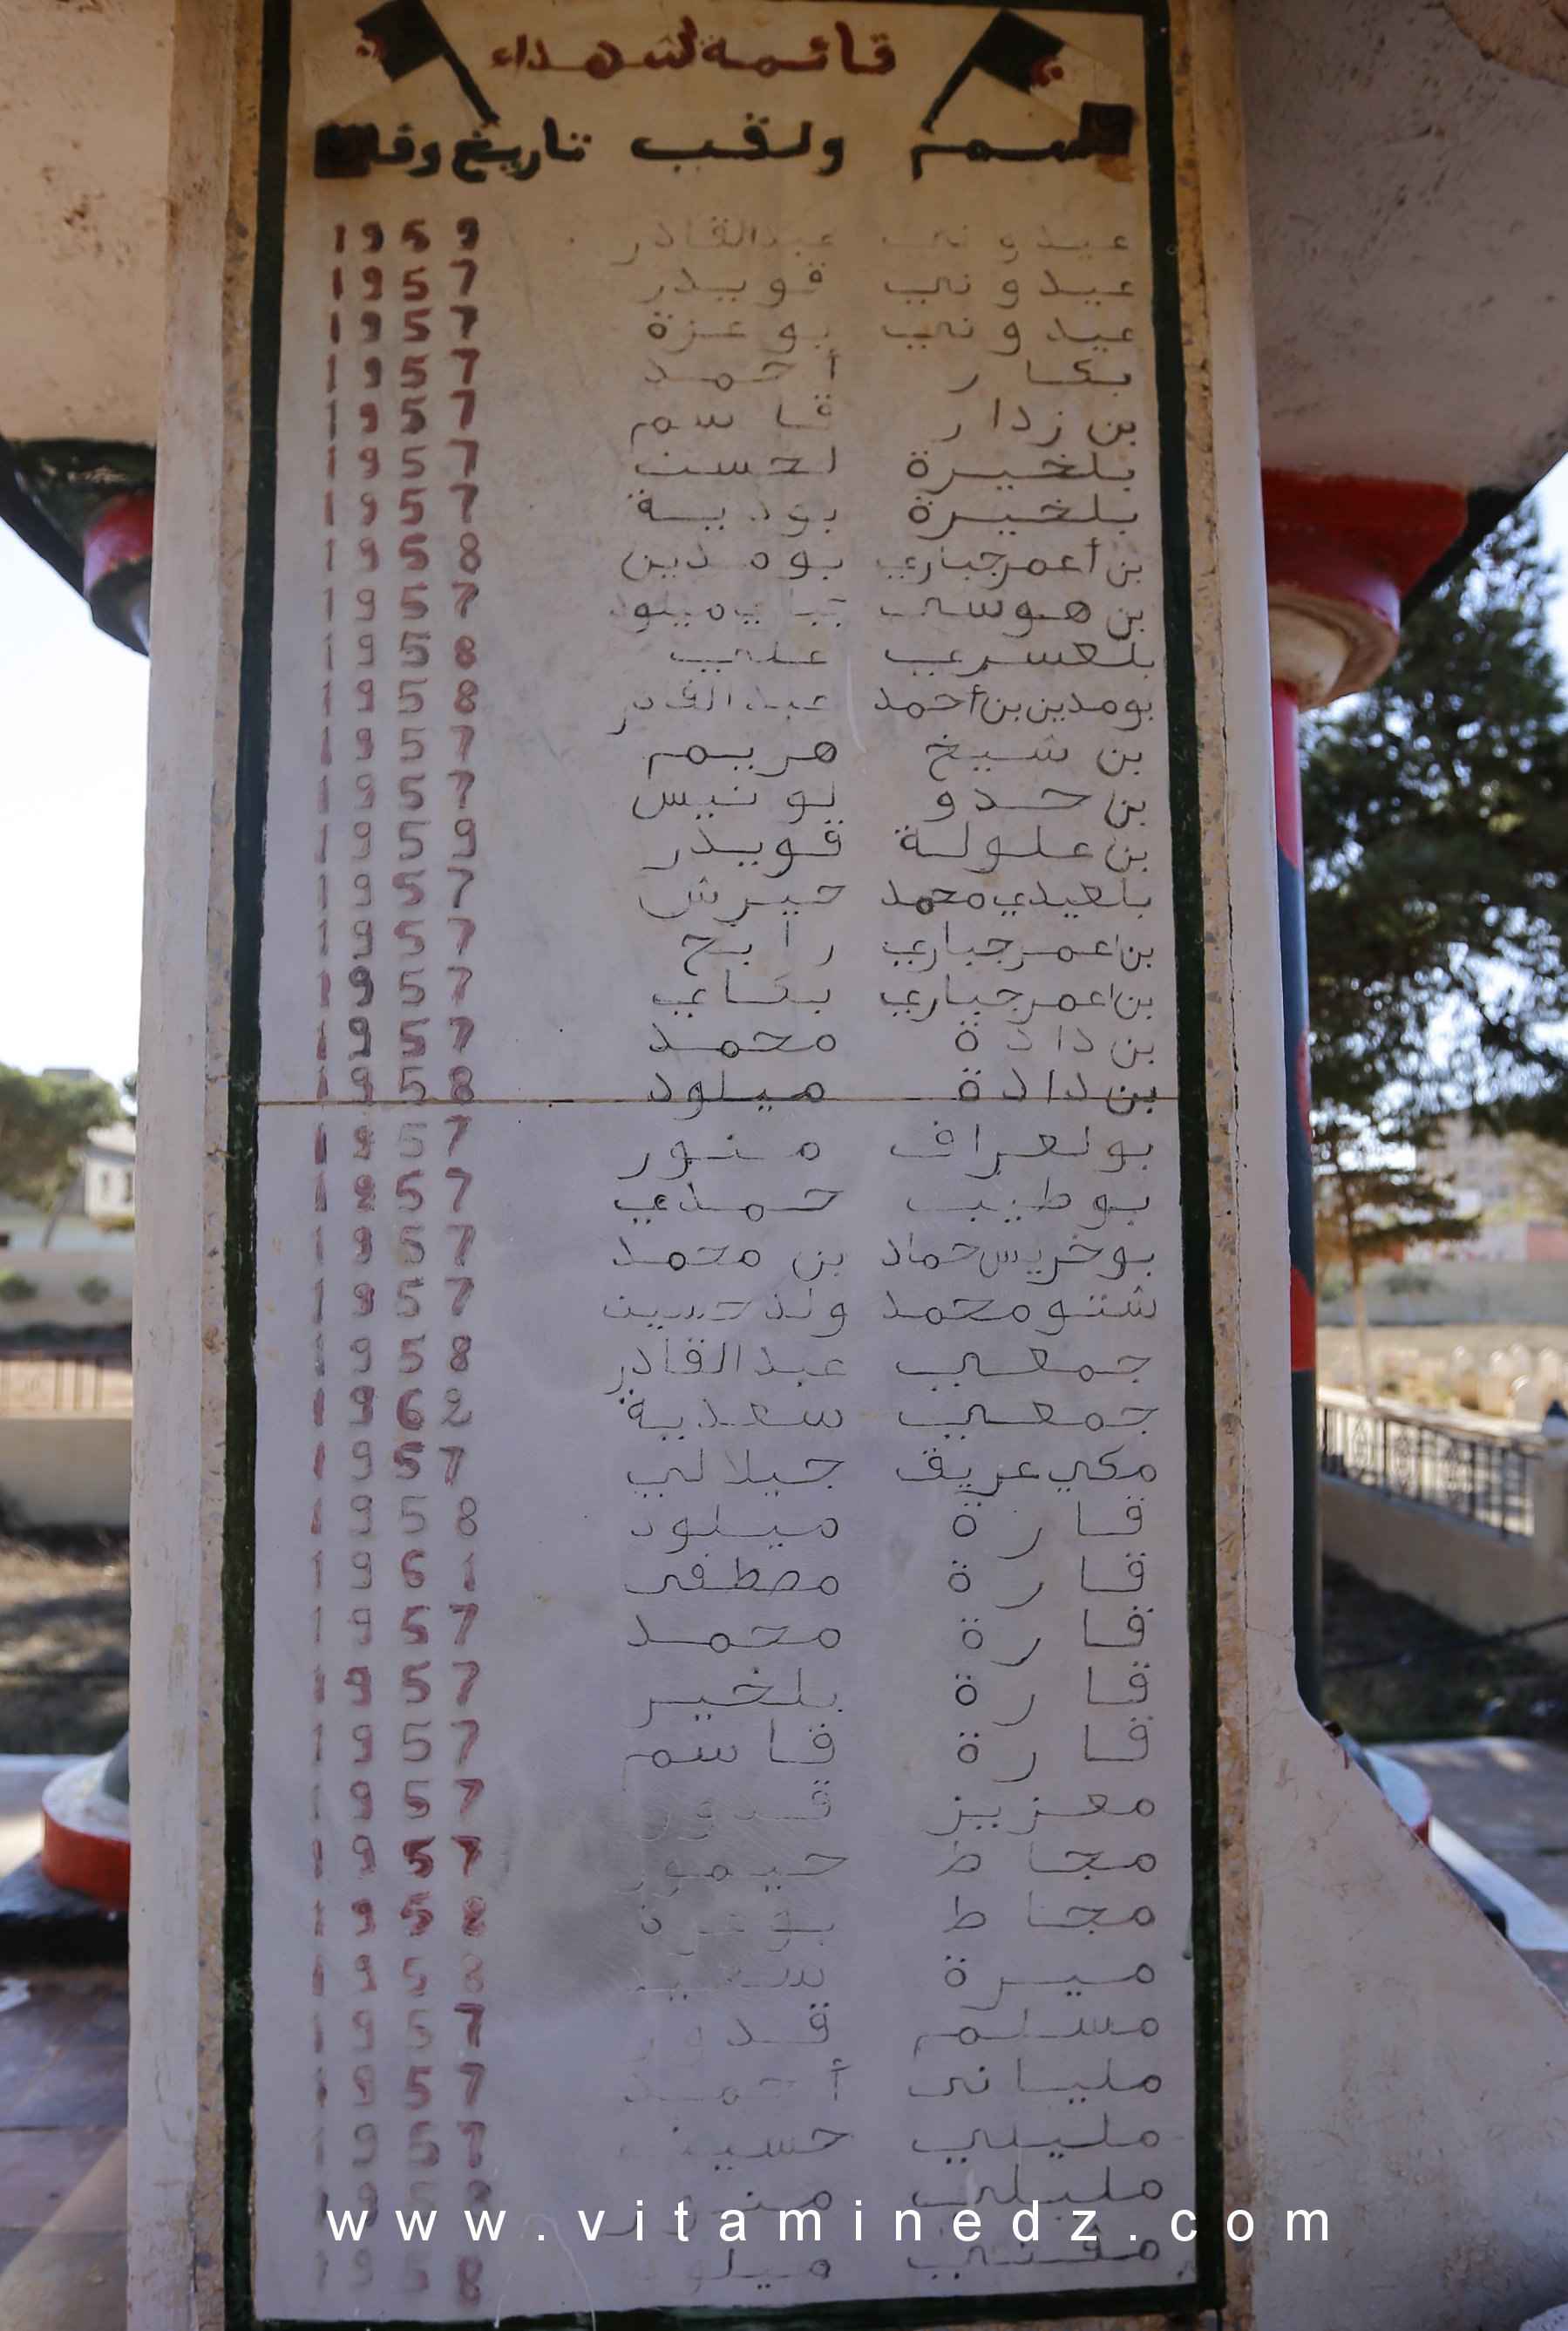 قائمة لشهداء
سم ولقب تاريخ وفاة
عيدوني عبدالقادر 1959
عيدوني قويدر 1957
عيدوني بوعزة 1957
بكار أحمد 1957
بن زدار قاسم 1957
بلخيرة لحسن 1957
بلخيرة بودية 1957
بن أعمر جباري بومدين 1958
بن هوسى ميلود 1957
بلعسري علي 1958
بومدين بن أحمد عبدالقادر 1958
بن شيخ مريم 1957
بن حدو لونيس 1957
بن علولة قويدر 1959
بلعيدي محمد حيرش 1957
بن اعمر جباري رابح 1957
بن اعمر جباري بكاي 1957
بن دادة محمد 1957
بن دادة ميلود 1958
بولعراف منور 1957
بوطيب حمدي 1957
بوخريس حماد بن محمد 1957
شتو محمد ولد حسين 1957
جمعي عبدالقادر 1958
جمعي سعدية 1962
مكي عريف جيلالي 1957
قارة ميلود 1958
قارة مصطفى 1961
قارة محمد 1957
قارة بلخير 1957
قارة قاسم 1957
معزيز قدور 1957
مجاط حيمور 1957
مجاط بوعزة 1958
ميرة سعيد 1958
مسلم قدور 1957
مليانى أحمد 1957
مليلي حسين 1957
مليلي منور
مفني ميلود 1958
www.vitaminedz.com